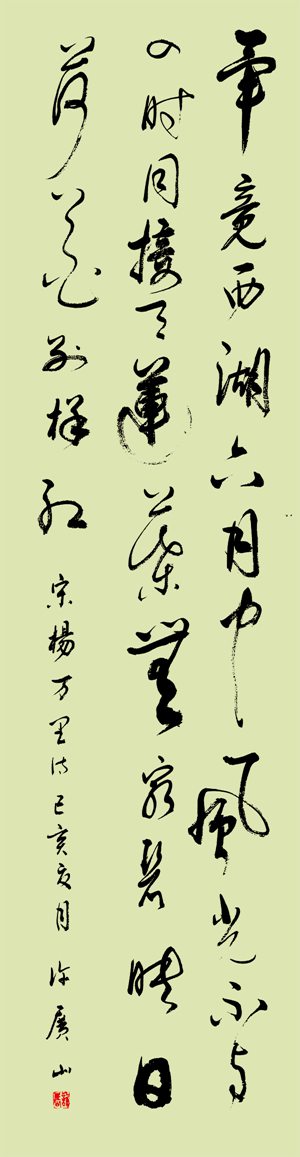 畢竟西湖六月中風光不与
四时同接天蓮葉無窮碧映日
荷花别样红 宋楊万里诗 己亥夏月 许廣山